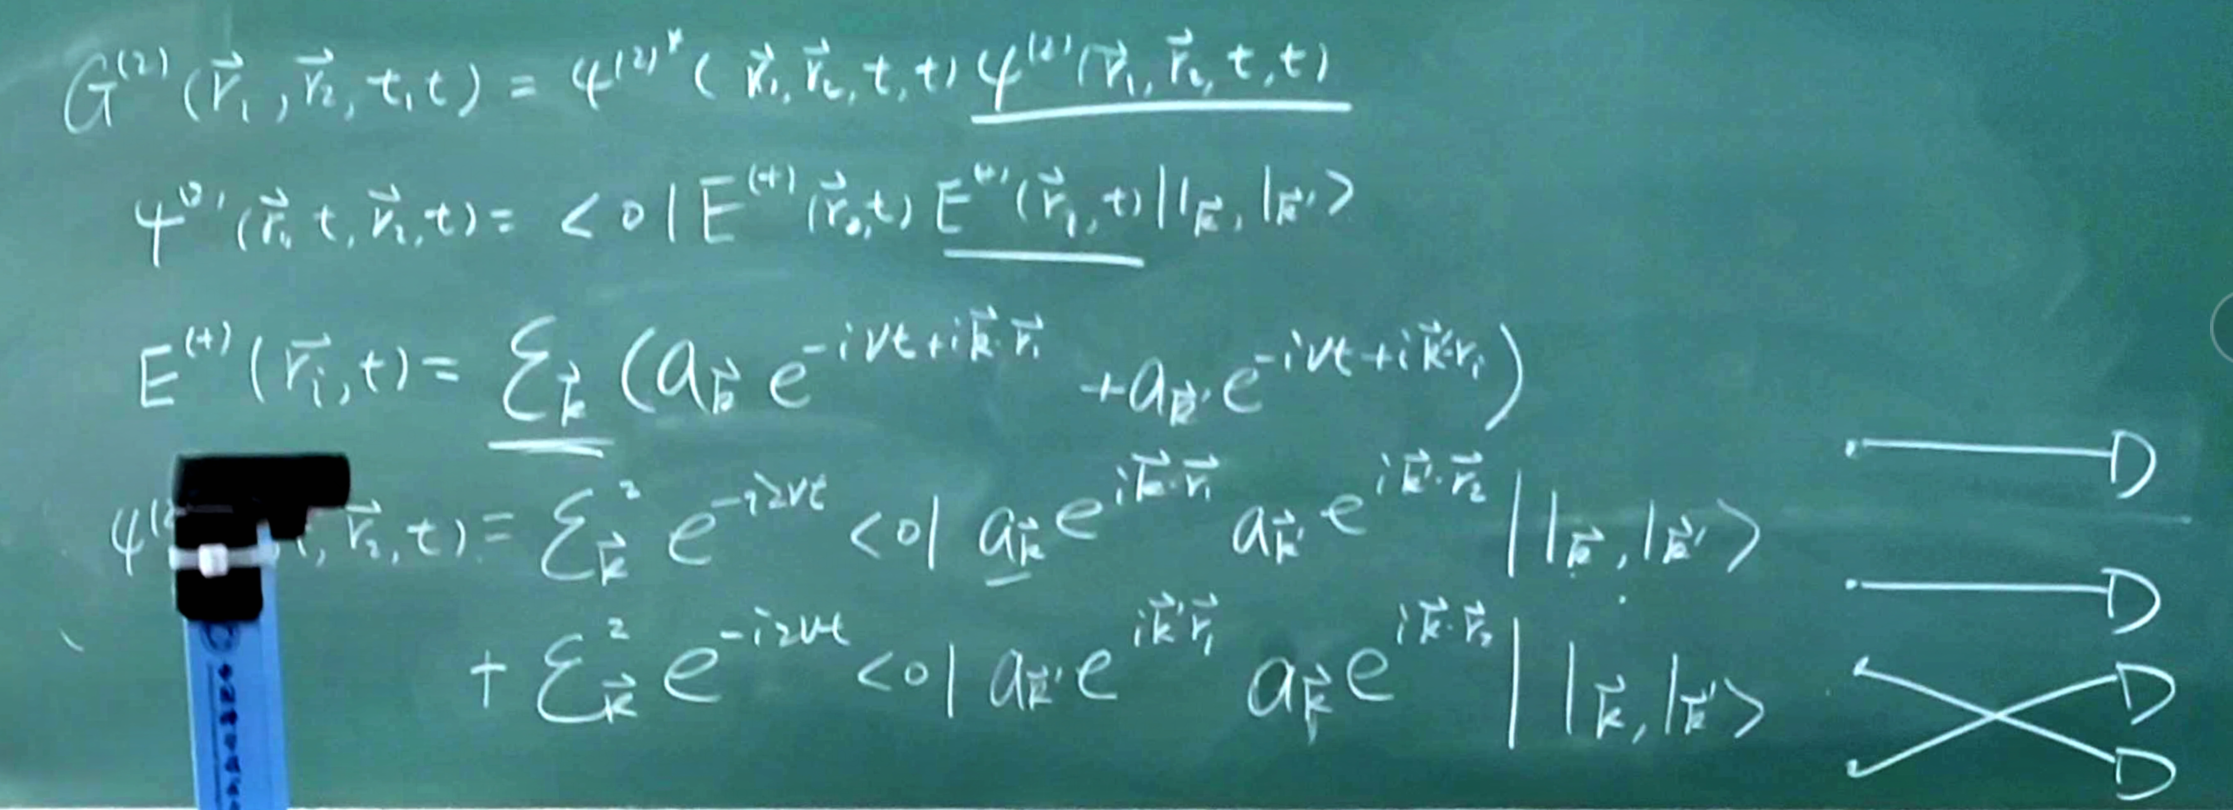 G⁽²⁾(r⃗₁, r⃗₂, t, t) = ψ⁽²⁾*(r⃗₁, r⃗₂, t, t) ψ⁽²⁾(r⃗₁, r⃗₂, t, t)
ψ⁽²⁾(r⃗₁, t, r⃗₂, t) = <0|E⁽⁺⁾(r⃗₂, t) E⁽⁺⁾(r⃗₁, t)|1_k⃗, 1_k⃗'>
E⁽⁺⁾(r⃗ᵢ, t) = ℰ_k⃗ (a_k⃗ e^{-iνt+ik⃗·r⃗ᵢ} + a_k⃗' e^{-iνt+ik⃗'·rᵢ})
r⃗₂, t) = ℰ_k⃗² e^{-i2νt} <0| a_k⃗ e^{ik⃗·r⃗₁} a_k⃗' e^{ik⃗'·r⃗₂} |1_k⃗, 1_k⃗'>
+ ℰ_k⃗² e^{-i2νt} <0| a_k⃗' e^{ik⃗'r⃗₁} a_k⃗ e^{ik⃗·r⃗₂} |1_k⃗, 1_k⃗'>